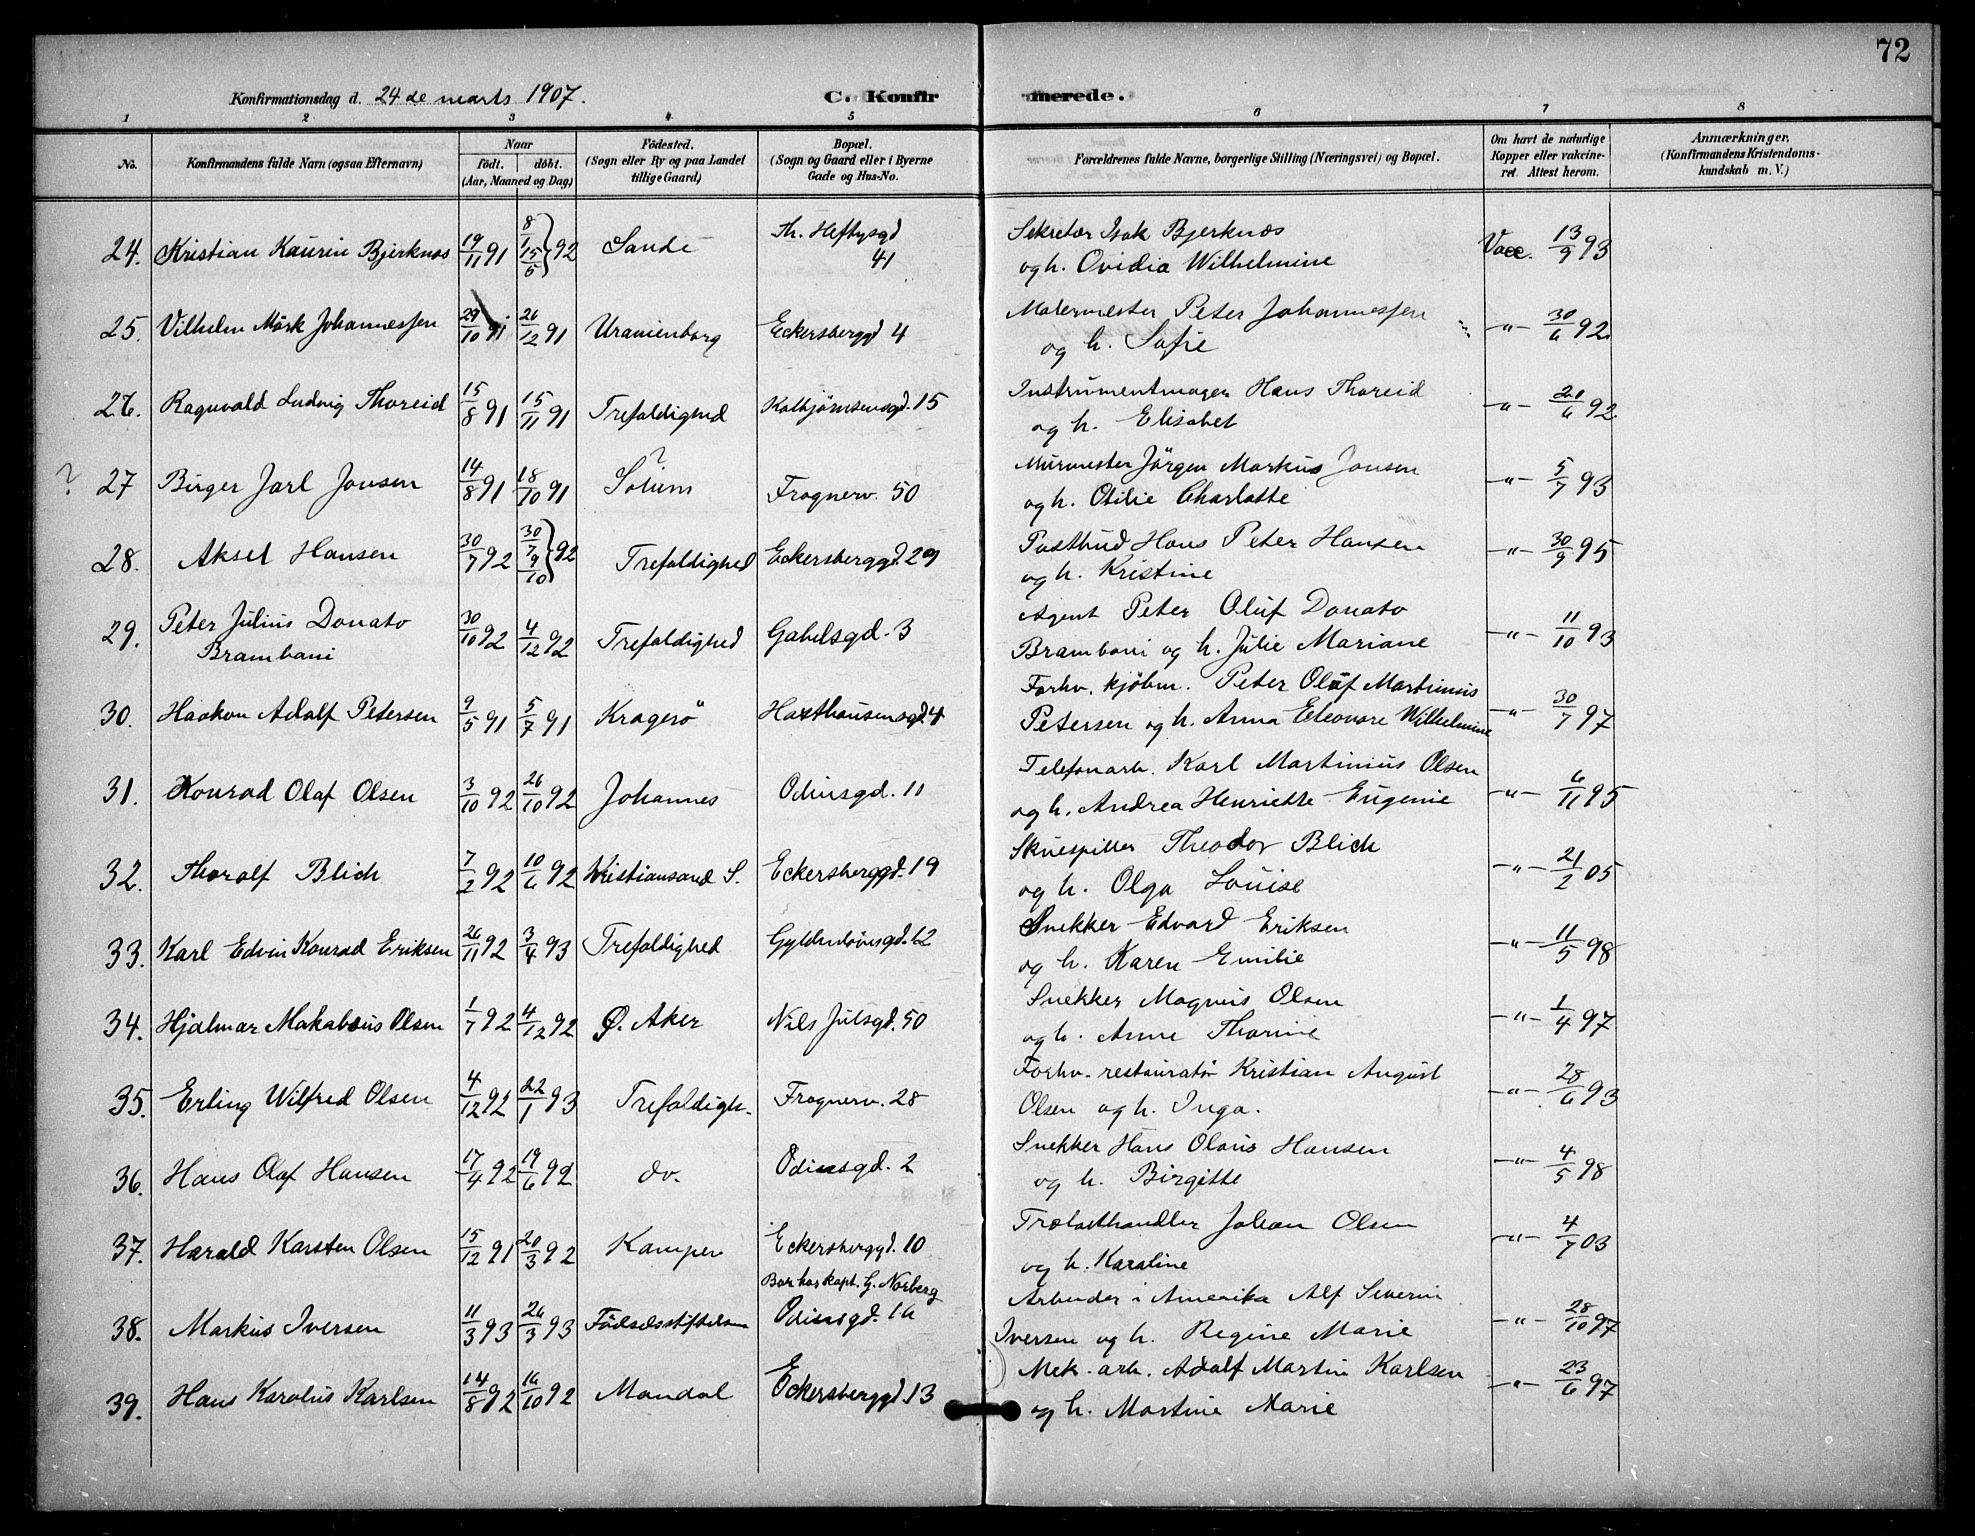 72
Konfirmationsdag d. 24 de marts 1907. C. Konfirmerede.
1 2 3 4 5 6 7 8
No. Konfirmandens fulde Navn (ogsaa Efternavn) Naar født. døbt. (Aar, Maaned og Dag) Fødested. (Sogn eller By og paa Landet tillige Gaard) Bopæl. (Sogn og Gaard eller i Byerne Gade og Hus-No. Forældrenes fulde Navne, borgerlige Stilling (Næringsvei) og Bopæl. Om havt de naturlige Kopper eller vakcineret. Attest herom. Anmærkninger. (Konfirmandens Kristendomskundskab m. V.)
24. Kristian Kaurin Bjerknæs 19/11 91 8/1 15/5 } 92 Sande Th. Heftysgd 41 Sekretær Isak Bjerknæs
og h. Ovidia Wilhelmine Vacc. 13/9 93
25. Vilhelm Mørk Johannessen 29/10 91 26/12 91 Uranienborg Eckersbergd 4 Malermester Peter Johannessen
og h. Sofie -"- 30/6 92
26. Ragnvald Ludvig Thoreid 15/8 91 15/11 91 Trefoldighed Kolbjørnsensgd. 15 Instrumentmager Hans Thoreid
og h. Elisabet -"- 20/6 92
? 27 Birger Jarl Jonsen 14/8 91 18/10 91 ? Solum Frognerv. 50 Murmester Jørgen Markus Jonsen
og h. Otilie Charlotte -"- 5/7 93
28. Aksel Hansen 30/7 92 30/7 9/10 } 92 Trefoldighed Eckersberggd. 29 Postbud Hans Peter Hansen
og h. Kristine -"- 30/9 95
29. Peter Julius Donato
Brambani 30/10 92 4/12 92 Trefoldighed Gabelsgd. 3 Agent Peter Oluf Donato
Brambani og h. Julie Mariane -"- 11/10 93
30. Haakon Adolf Petersen 9/5 91 5/7 91 Kragerø Haxthausensgd. 4 Forhv. kjøbm. Peter Oluf Martinius
Petersen og h. Anna Eleonore Wilhelmine -"- 30/7 97
31. Konrad Olaf Olsen 3/10 92 26/10 92 Johannes Odinsgd. 11 Telefonarb. Karl Martinius Olsen
og h. Andrea Henriette Eugenie -"- 6/11 95
32. Thoralf Blich 7/2 92 10/6 92 Kristiansand S. Eckersberggd. 19 Skuespiller Theodor Blich
og h. Olga Louise -"- 21/2 05
33. Karl Edvin Konrad Eriksen 26/11 92 3/4 93 Trefoldighed Gyldenløvesgd. 12 Snekker Edvard Eriksen
og h. Karen Emilie -"- 11/5 98
34. Hjalmar Makabæus Olsen 1/7 92 4/12 92 Ø. Aker Nils Julsgd. 50 Snekker Magnus Olsen
og h. Anne Thorine -"- 1/4 97
35. Erling Wilfred Olsen 4/12 92 22/1 93 Trefoldigh. Frognerv. 28 Forhv. restauratør Kristian August
Olsen og h. Inga. -"- 28/6 93
36. Hans Olaf Hansen 17/4 92 19/6 92 do. Odinsgd. 2 Snekker Hans Olaus Hansen
og h. Birgitte -"- 4/5 98
37. Harald Karsten Olsen 15/12 91 20/3 92 Kampen Eckersberggd. 10 Trælasthandler Johan Olsen
og h. Karoline -"- 4/7 03
38. Markus Iversen 11/3 93 26/3 93 Fødselsstiftelsen Bor hos kapt. G. Norberg
Odinsgd. 16 Arbeider i Amerika Alf Severin
Iversen og h. Regine Marie -"- 28/10 97
39. Hans Karolius Karlsen 14/8 92 16/10 92 Mandal Eckersberggd. 13 Mek. arb. Adolf Martin Karlsen
og h. Martine Marie -"- 23/6 97